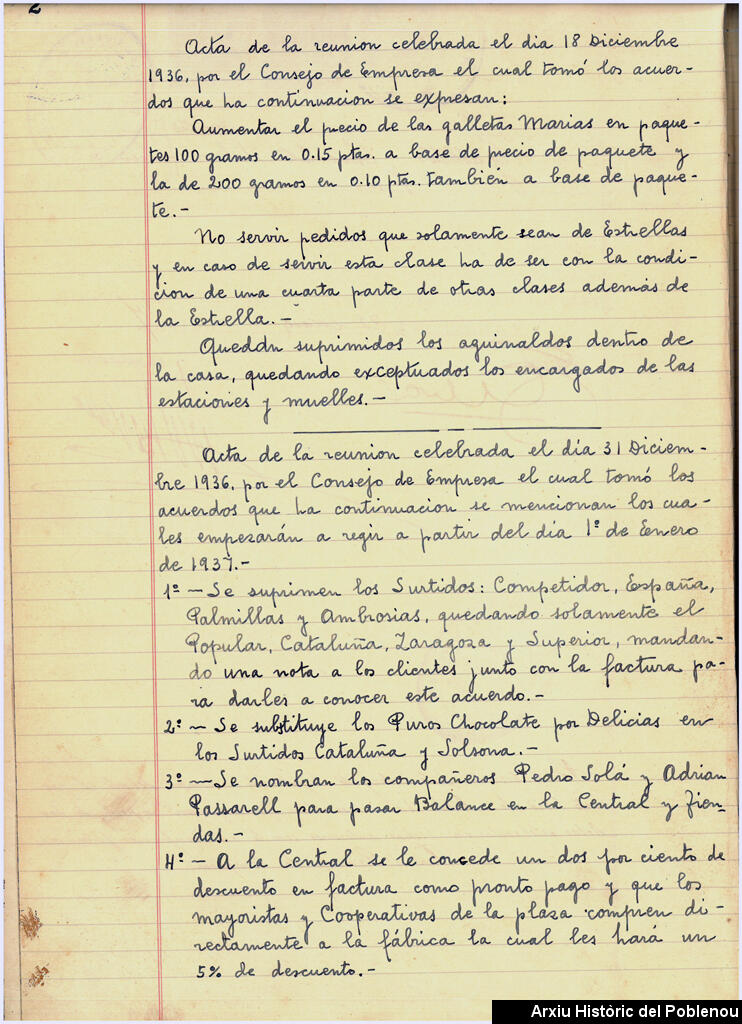 2
Acta de la reunion celebrada el dia 18 Diciembre
1936, por el Consejo de Empresa el cual tomó los acuer-
dos que ha continuacion se expresan:
Aumentar el precio de las galletas Marias en paque-
tes 100 gramos en 0.15 ptas. a base de precio de paquete y
la de 200 gramos en 0.10 ptas. también a base de paque-
te.-
No servir pedidos que solamente sean de Estrellas
y en caso de servir esta clase ha de ser con la condi-
cion de una cuarta parte de otras clases además de
la Estrella.-
Quedan suprimidos los aguinaldos dentro de
la casa, quedando exceptuados los encargados de las
estaciones y muelles.-
Acta de la reunion celebrada el día 31 Diciem-
bre 1936, por el Consejo de Empresa el cual tomó los
acuerdos que ha continuacion se mencionan los cua-
les empezarán a regir a partir del día 1º de Enero
de 1937.-
1º - Se suprimen los Surtidos: Competidor, España,
Palmillas y Ambrosias, quedando solamente el
Popular, Cataluña, Zaragoza y Superior, mandan-
do una nota a los clientes junto con la factura pa-
ra darles a conocer este acuerdo.-
2º - Se substituye los Puros Chocolate por Delicias en
los Surtidos Cataluña y Solsona.-
3º - Se nombran los compañeros Pedro Solá y Adrian
Passarell para pasar Balance en la Central y Tien-
das.-
4º - A la Central se le concede un dos por ciento de
descuento en factura como pronto pago y que los
mayoristas y Cooperativas de la plaza compren di-
rectamente a la fábrica la cual les hará un
5% de descuento.-
Arxiu Històric del Poblenou